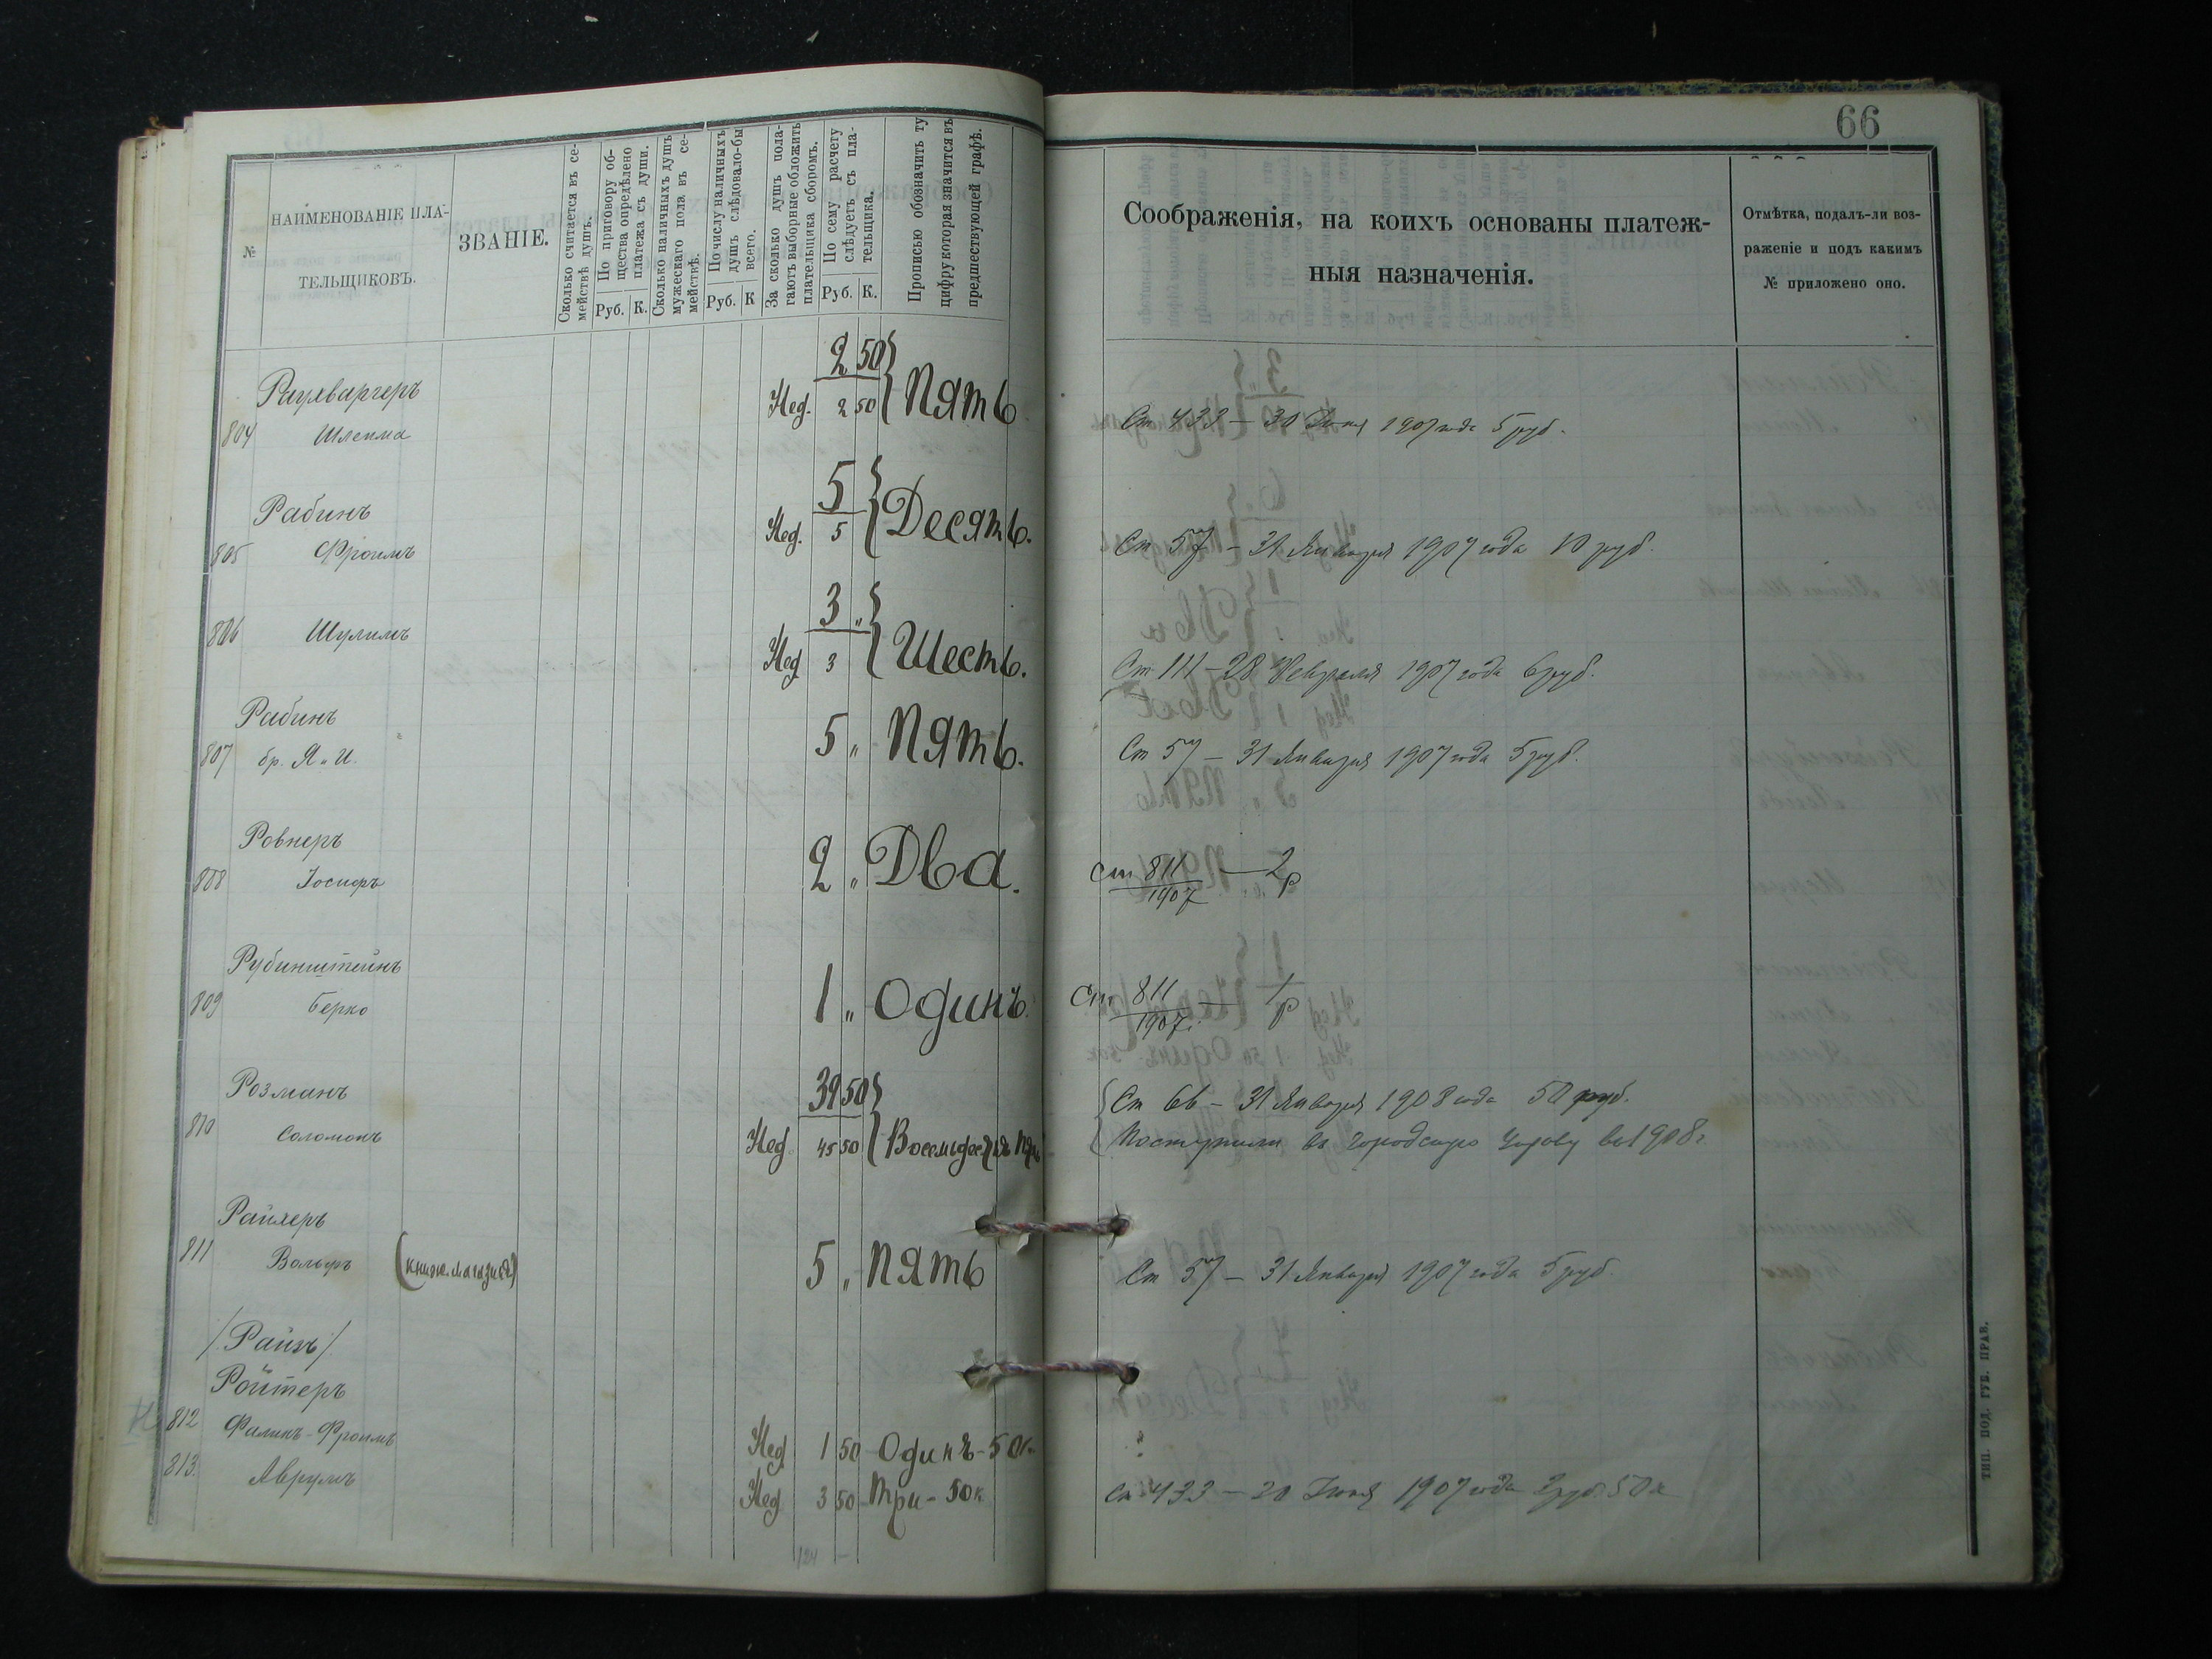 66
№
НАИМЕНОВАНІЕ ПЛА-
ТЕЛЬЩИКОВЪ.
ЗВАНІЕ.
Сколько считается въ се-
мействѣ душъ.
По приговору об-
щества опредѣлено
платежа съ души.
Руб. К.
Сколько наличныхъ душъ
мужескаго пола въ се-
мействѣ.
По числу наличныхъ
душъ слѣдовало-бы
всего.
Руб. К
За сколько душъ пола-
гаютъ выборные обложить
плательщика сборомъ.
По сему расчету
слѣдуетъ съ пла-
тельщика.
Руб. К.
Прописью обозначить ту
цифру которая значится въ
предшествующей графѣ.
Соображенія, на коихъ основаны платеж-
ныя назначенія.
Отмѣтка, подалъ-ли воз-
раженіе и подъ какимъ
№ приложено оно.
2 50
804 Шлейма Нед. 2 50 Пять Ст 433 — 30 Іюня 1907 года 5 руб.
Рабинъ 5
805 Фроимъ Нед. 5 Десять. Ст 57 — 31 Января 1907 года 10 руб.
3 „
806 Шулимъ Нед 3 Шесть. Ст 111 — 28 Февраля 1907 года 6 руб.
Рабинъ
807 бр. Я. и И. 5 „ Пять. Ст 57 — 31 Января 1907 года 5 руб.
Ровнеръ
808 Іосифъ 2 „ Два. Ст 811/1907 — 2 р
Рубинштейнъ
809 Берко 1 „ Одинъ. Ст 811/1907 — 1 р
Розманъ 39 50 Ст 66 — 31 Января 1908 года 50 руб.
810 Соломонъ Нед 45 50 Восемьдесятъ пять Поступили въ городскую Управу въ 1908 г
Райхеръ
811 Вольфъ (книж. магазинъ) 5 „ Пять Ст 57 — 31 Января 1907 года 5 руб.
/Райзъ/
Ройтеръ
812 Фроимъ Нед 1 50 Одинъ - 50 к.
813. Аврумъ Нед 3 50 Три - 50 к Ст 433 — 30 Іюня 1907 года 3 руб. 50 к
124 —
ТИП. ПОД. ГУБ. ПРАВ.